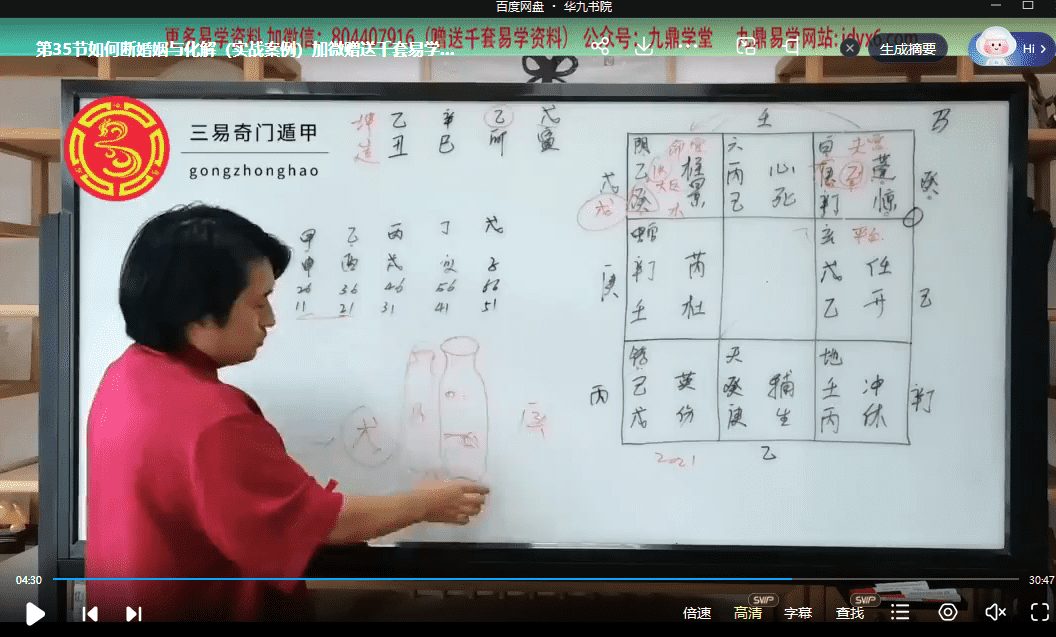 百度网盘 · 华九书院
更多易学资料 加微信：804407916（赠送千套易学资料） 公众号：九鼎学堂 九鼎易学网站：jdyx6.com
第35节如何断婚姻与化解（实战案例）加微赠送千套易学...
生成摘要
Hi
三易奇门遁甲
gongzhonghao
坤 乙 辛 乙 戊
造 丑 巳 卯 寅
甲 乙 丙 丁 戊
申 酉 戌 亥 子
26 36 46 56 66
11 21 31 41 51
壬
马
阴 命宫 六 白 夫宫
乙 柱 丙 心 庚 蓬
癸 景 己 死 辛 惊
戊 癸
辛 芮 戊 任
壬 杜 乙 开
庚 己
天 地
己 英 癸 辅 壬 冲
戊 伤 庚 生 丙 休
丙 辛
2021 乙
04:30
30:47
倍速
SVIP
高清
字幕
SVIP
查找